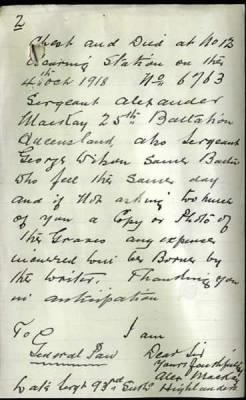 2
Chest and Died at No 12
Clearing Station on the
4th Oct 1918 No 6763
Sergeant Alexander
Mackay 25th Battalion
Queensland, also Sergeant
George Wilson Same Battn
Who fell the Same day
and if Not asking too much
of you a Copy or Photo of
their Graves any expense
incurred will be Borne by
the Writer. Thanking you
in anticipation
To C I am
General Dear Sir
Yours Faithfully
Alex Mackay
Late Sergt 93rd Suth. Highlanders